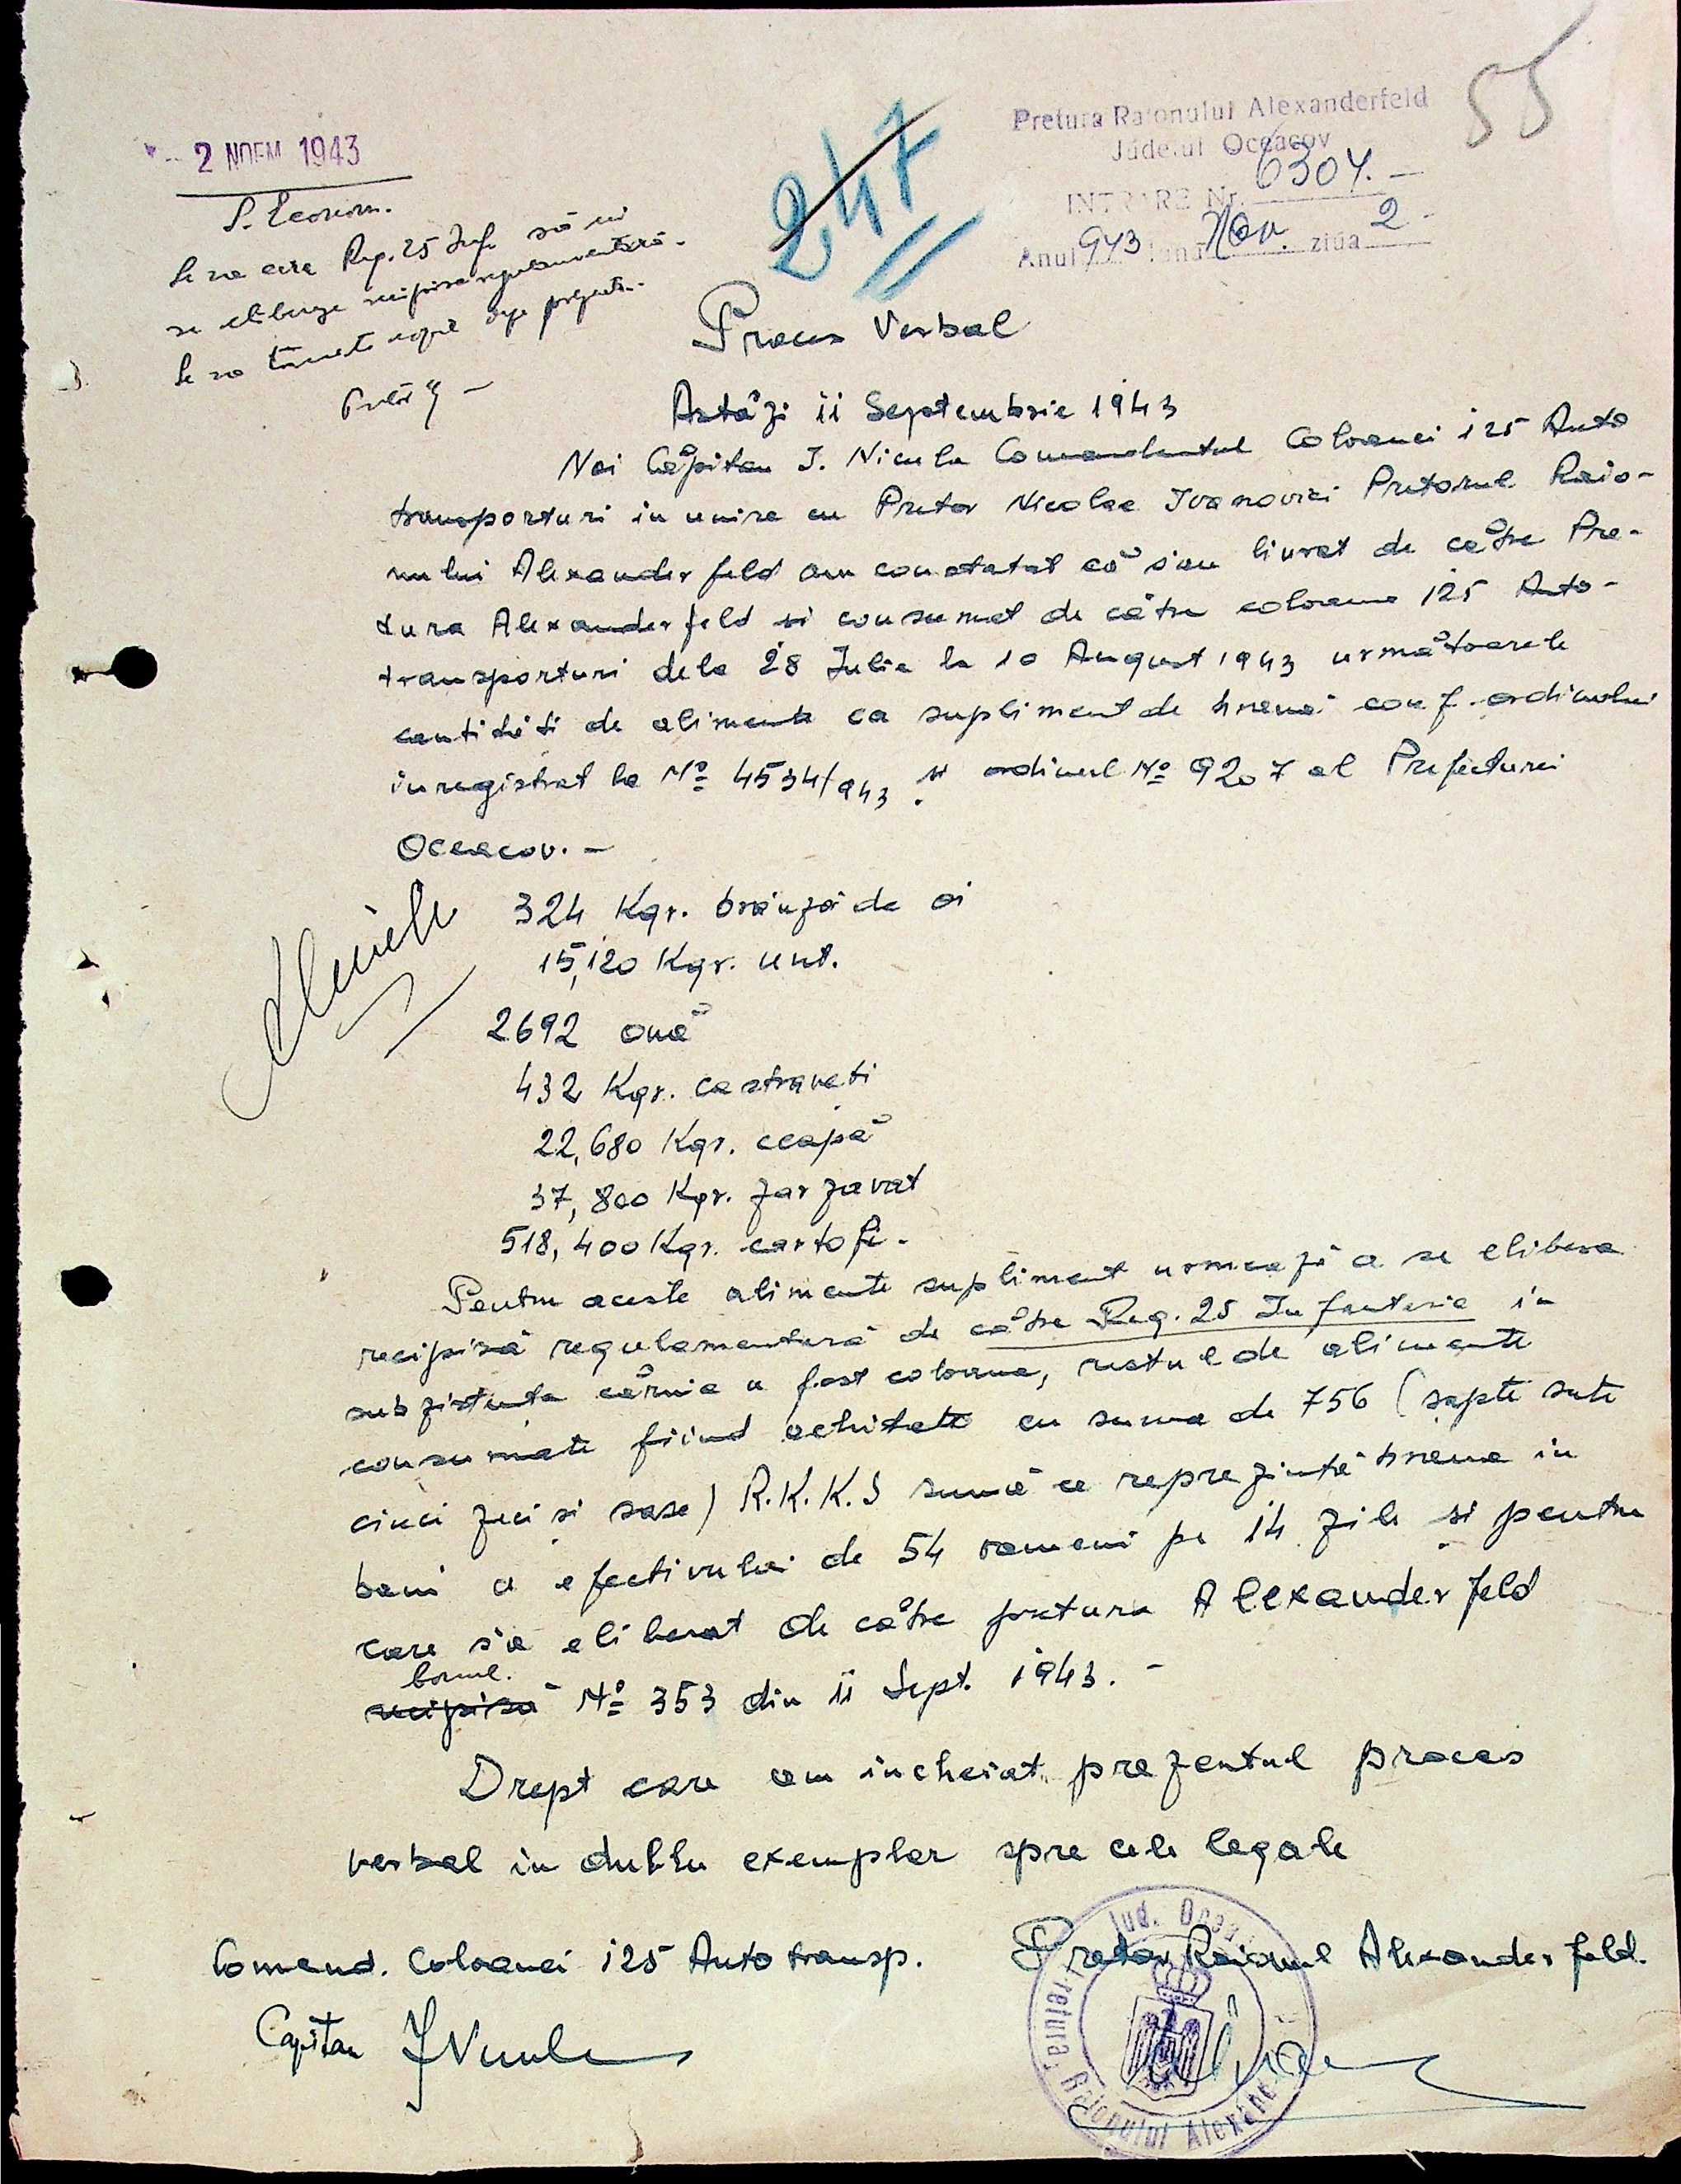 55
Pretura Raionului Alexanderfeld
Județul Oceacov
INTRARE Nr. 6304. —
Anul 943 luna Nov. ziua 2 -
- 2 NOEM 1943
S. Econom.
Se va cere Reg. 25 Inf. să ni
se elibereze recipisa regulamentară.
Se va trimite copie
247
Proces Verbal
Astăzi 11 Septembrie 1943
Noi Căpitan I. Nicula Comandantul Coloanei 125 Auto
transporturi in unire cu Pretor Nicolae Ivanovici Pretorul Raio-
nului Alexanderfeld am constatat că s'au livrat de către Pre-
tura Alexanderfeld si consumat de către coloana 125 Auto-
transporturi dela 28 Iulie la 10 August 1943 următoarele
cantități de alimente ca supliment de hrană conf. ordinului
inregistrat la No 4534/943 și ordinul No 9207 al Prefecturei
Oceacov. —
324 Kgr. brânză de oi
15,120 Kgr. unt.
2692 ouă
432 Kgr. castraveti
22,680 Kgr. ceapă
37,800 Kgr. zarzavat
518,400 Kgr. cartofi.
Pentru aceste alimente supliment urmează a se elibera
recipisă regulamentară de către Reg. 25 Infanterie in
subzistenta căruia a fost coloana, restul de alimente
consumate fiind achitate cu suma de 756 (sapte sute
cinci zeci si sase) R.K.K.S sumă ce reprezintă hrana in
bani a efectivului de 54 oameni pe 14 zile si pentru
care s'a eliberat de către pretura Alexanderfeld
bonul.
recipisă No 353 din 11 Sept. 1943. —
Drept care am incheiat prezentul proces
verbal in dublu exemplar spre cele legale
Comand. Coloanei 125 Auto transp.
Pretor Raionul Alexanderfeld.
Capitan I Nicula
Jud. Ocea
Pretura Raionului Alexander